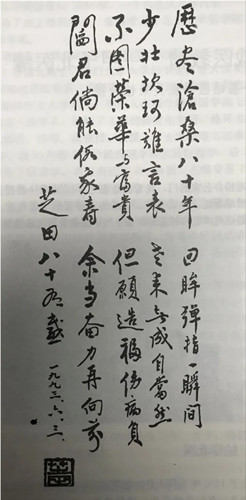 歷盡滄桑八十年 回眸彈指一瞬間
少壯坎坷難言表 老來無成自當然
不圖榮華与富貴 但願造福傷病員
閻君倘能假我壽 余當奮力再向前
芝田八十有感 一九九三.六.三.